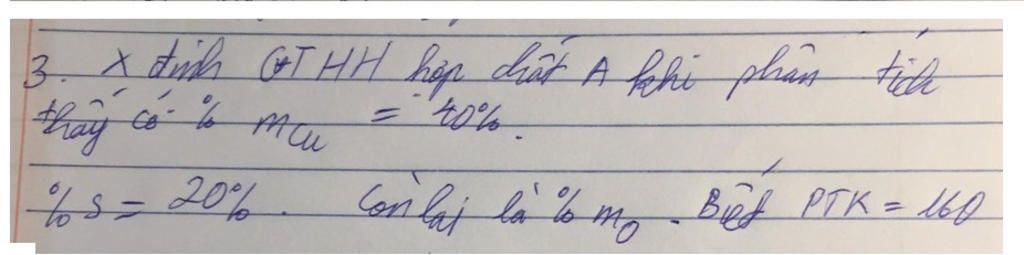 3. X định CTHH hợp chất A khi phân tích
thấy có % mCu = 40%.
%S = 20%. Còn lại là % mO. Biết PTK = 160